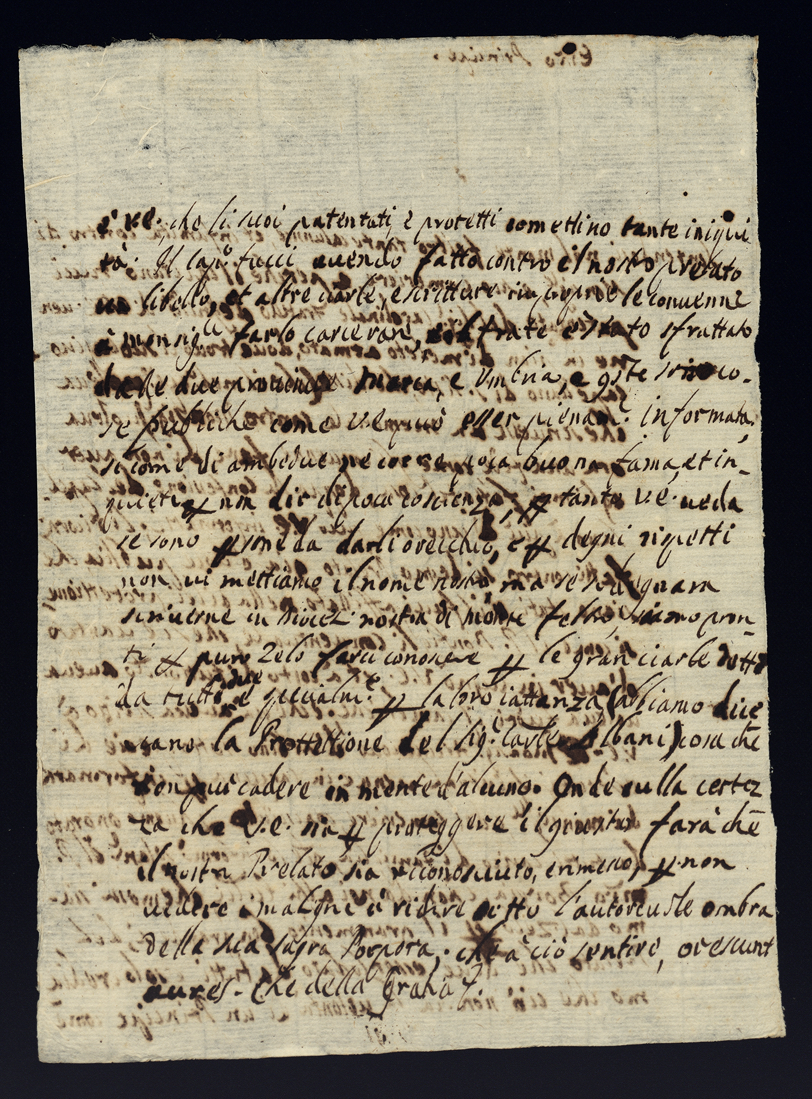 à V.E. che li suoi patentati, e protetti comettino tante iniqui
tà. Il Cap.º Tucci avendo fatto contro il nostro prelato
un libello, et altre ciarle, e scritture improprie le convenne
à monsig.re farlo carcerare, e il frate è stato sfruttato
dalle due provincie Marca, e Umbria, e q.ste sono co-
se publiche come V.E. può esser pienam.te informata,
si come di ambedue ne corre poca buona fama, et in-
quieti, p non dir di poca coscienza; p tanto V.E. veda
se sono psone da darli orecchio, e p degni rispetti
non vi mettiamo il nome nostro, ma se si degnara
scriverne in Diocesi nostra di Monte feltro, siamo pron-
ti p puro zelo farci conoscere p le gran ciarle dette
da tutti due e specialm.te p la loro iattanza (abbiamo dice
vano la Prottettione del Sig.r Card.le Albani) cosa che
non può cadere in mente d'alcuno. Onde sulla certez
za che V.E. sia p proteggere il giusto farà che
il nostro Prelato sia riconosciuto, e rimesso, p non
vedere i maligni à ridere sotto l'autorevole ombra
della sua sagra Porpora, che à ciò sentire, orescunt
aures. Che della Grazia &.